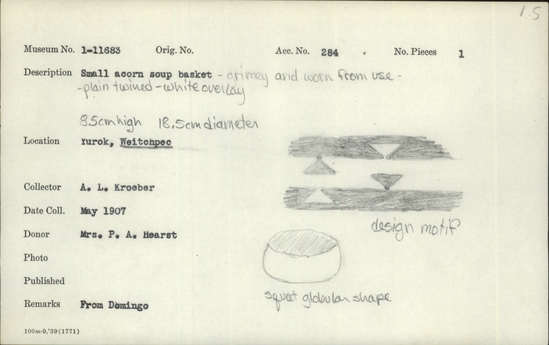 1.5
Museum No. 1-11683 Orig. No. Acc. No. 284 . No. Pieces 1
Description Small acorn soup basket - grimey and worn from use -
-plain twined - white overlay
8.5cm high 18.5cm diameter
Location Yurok, Weitchpec
Collector A. L. Kroeber
Date Coll. May 1907
design motif
Donor Mrs. P. A. Hearst
Photo
Published
squat globular shape
Remarks From Domingo
100m-9,'39(1771)